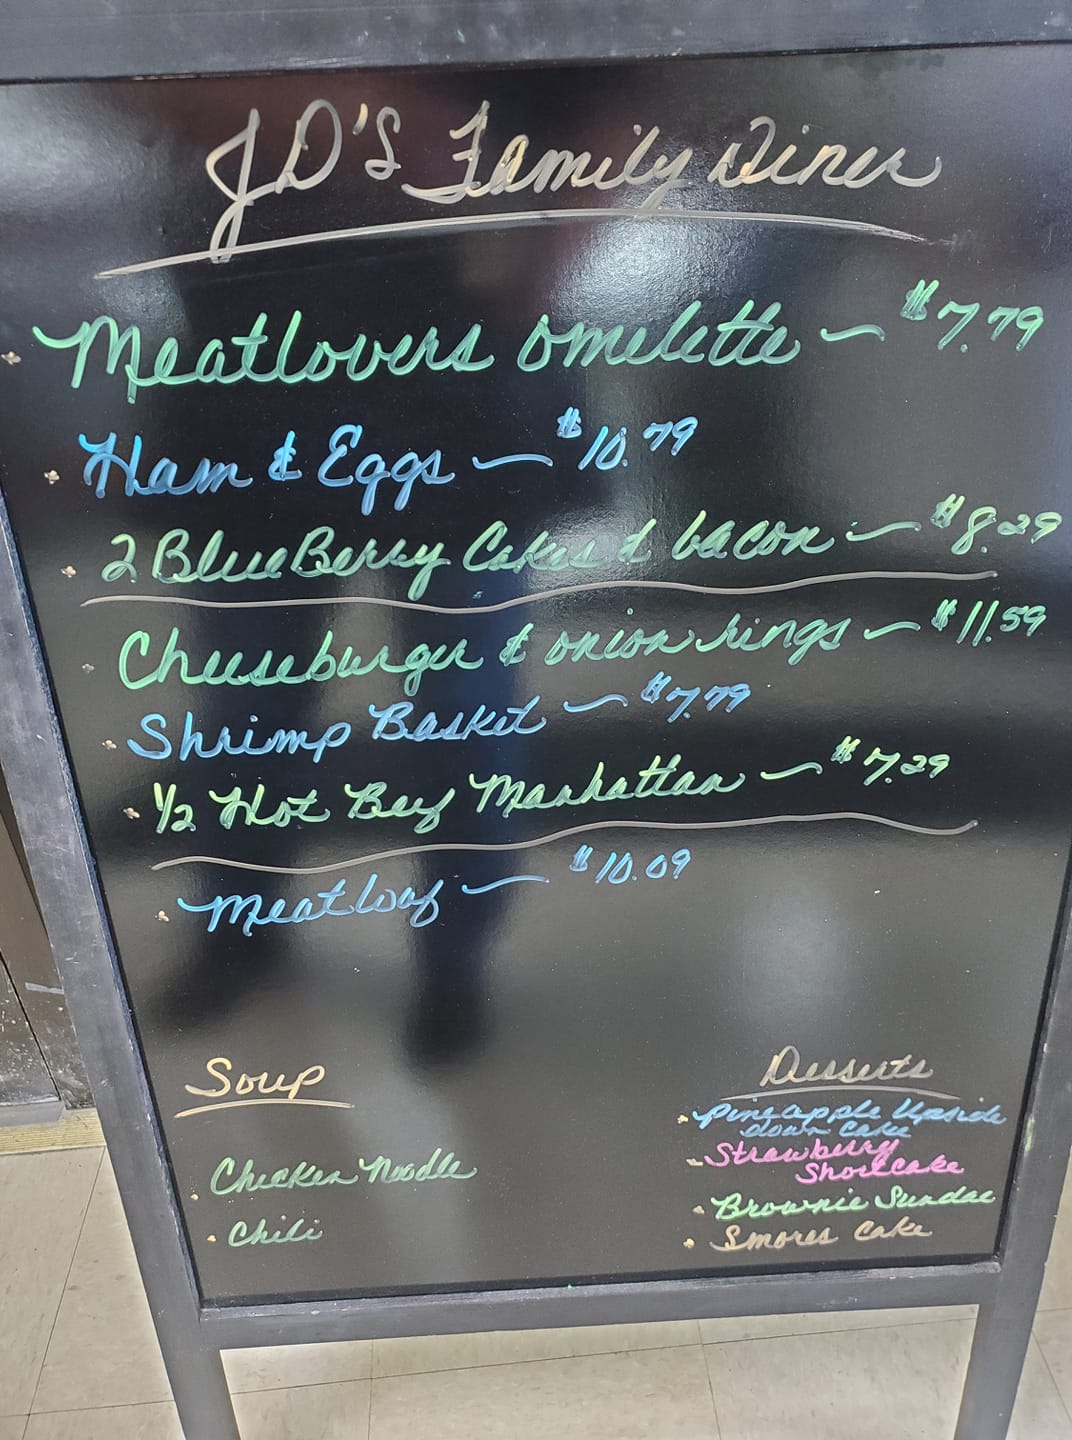 JD'S Family Diner
Meatlovers omelette — $7.79
Ham & Eggs — $10.79
2 BlueBerry Cakes & bacon — $8.29
Cheeseburger & onion rings — $11.59
Shrimp Basket — $7.79
1/2 Hot Beef Manhattan — $7.29
Meatloaf — $10.09
Soup
Chicken Noodle
Chili
Desserts
Pineapple Upside
down Cake
Strawberry
Shortcake
Brownie Sundae
Smores Cake